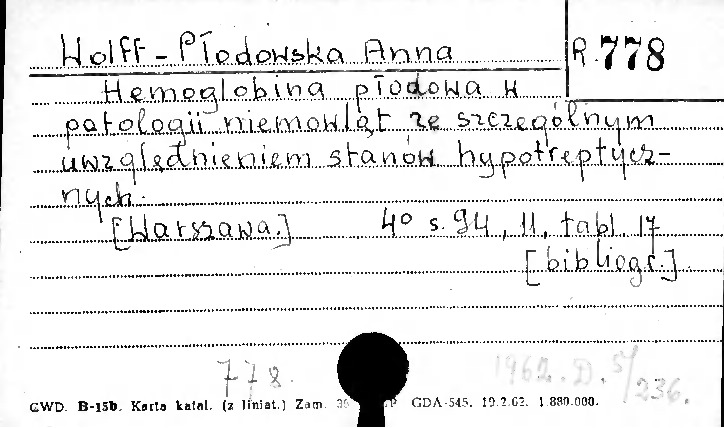 Wolff-Płodowska Anna
R 778
Hemoglobina płodowa w
patologii niemowląt ze szczególnym
uwzględnieniem stanów hypotreptycz-
nych.
[Warszawa.] 4° s. 94, 11, tabl. 17
[bibliogr.]
778.
1962. D. 5/236.
GWD. B-15b. Karta katal. (z liniat.) Zam. GDA-545. 19.2.62. 1.880.000.